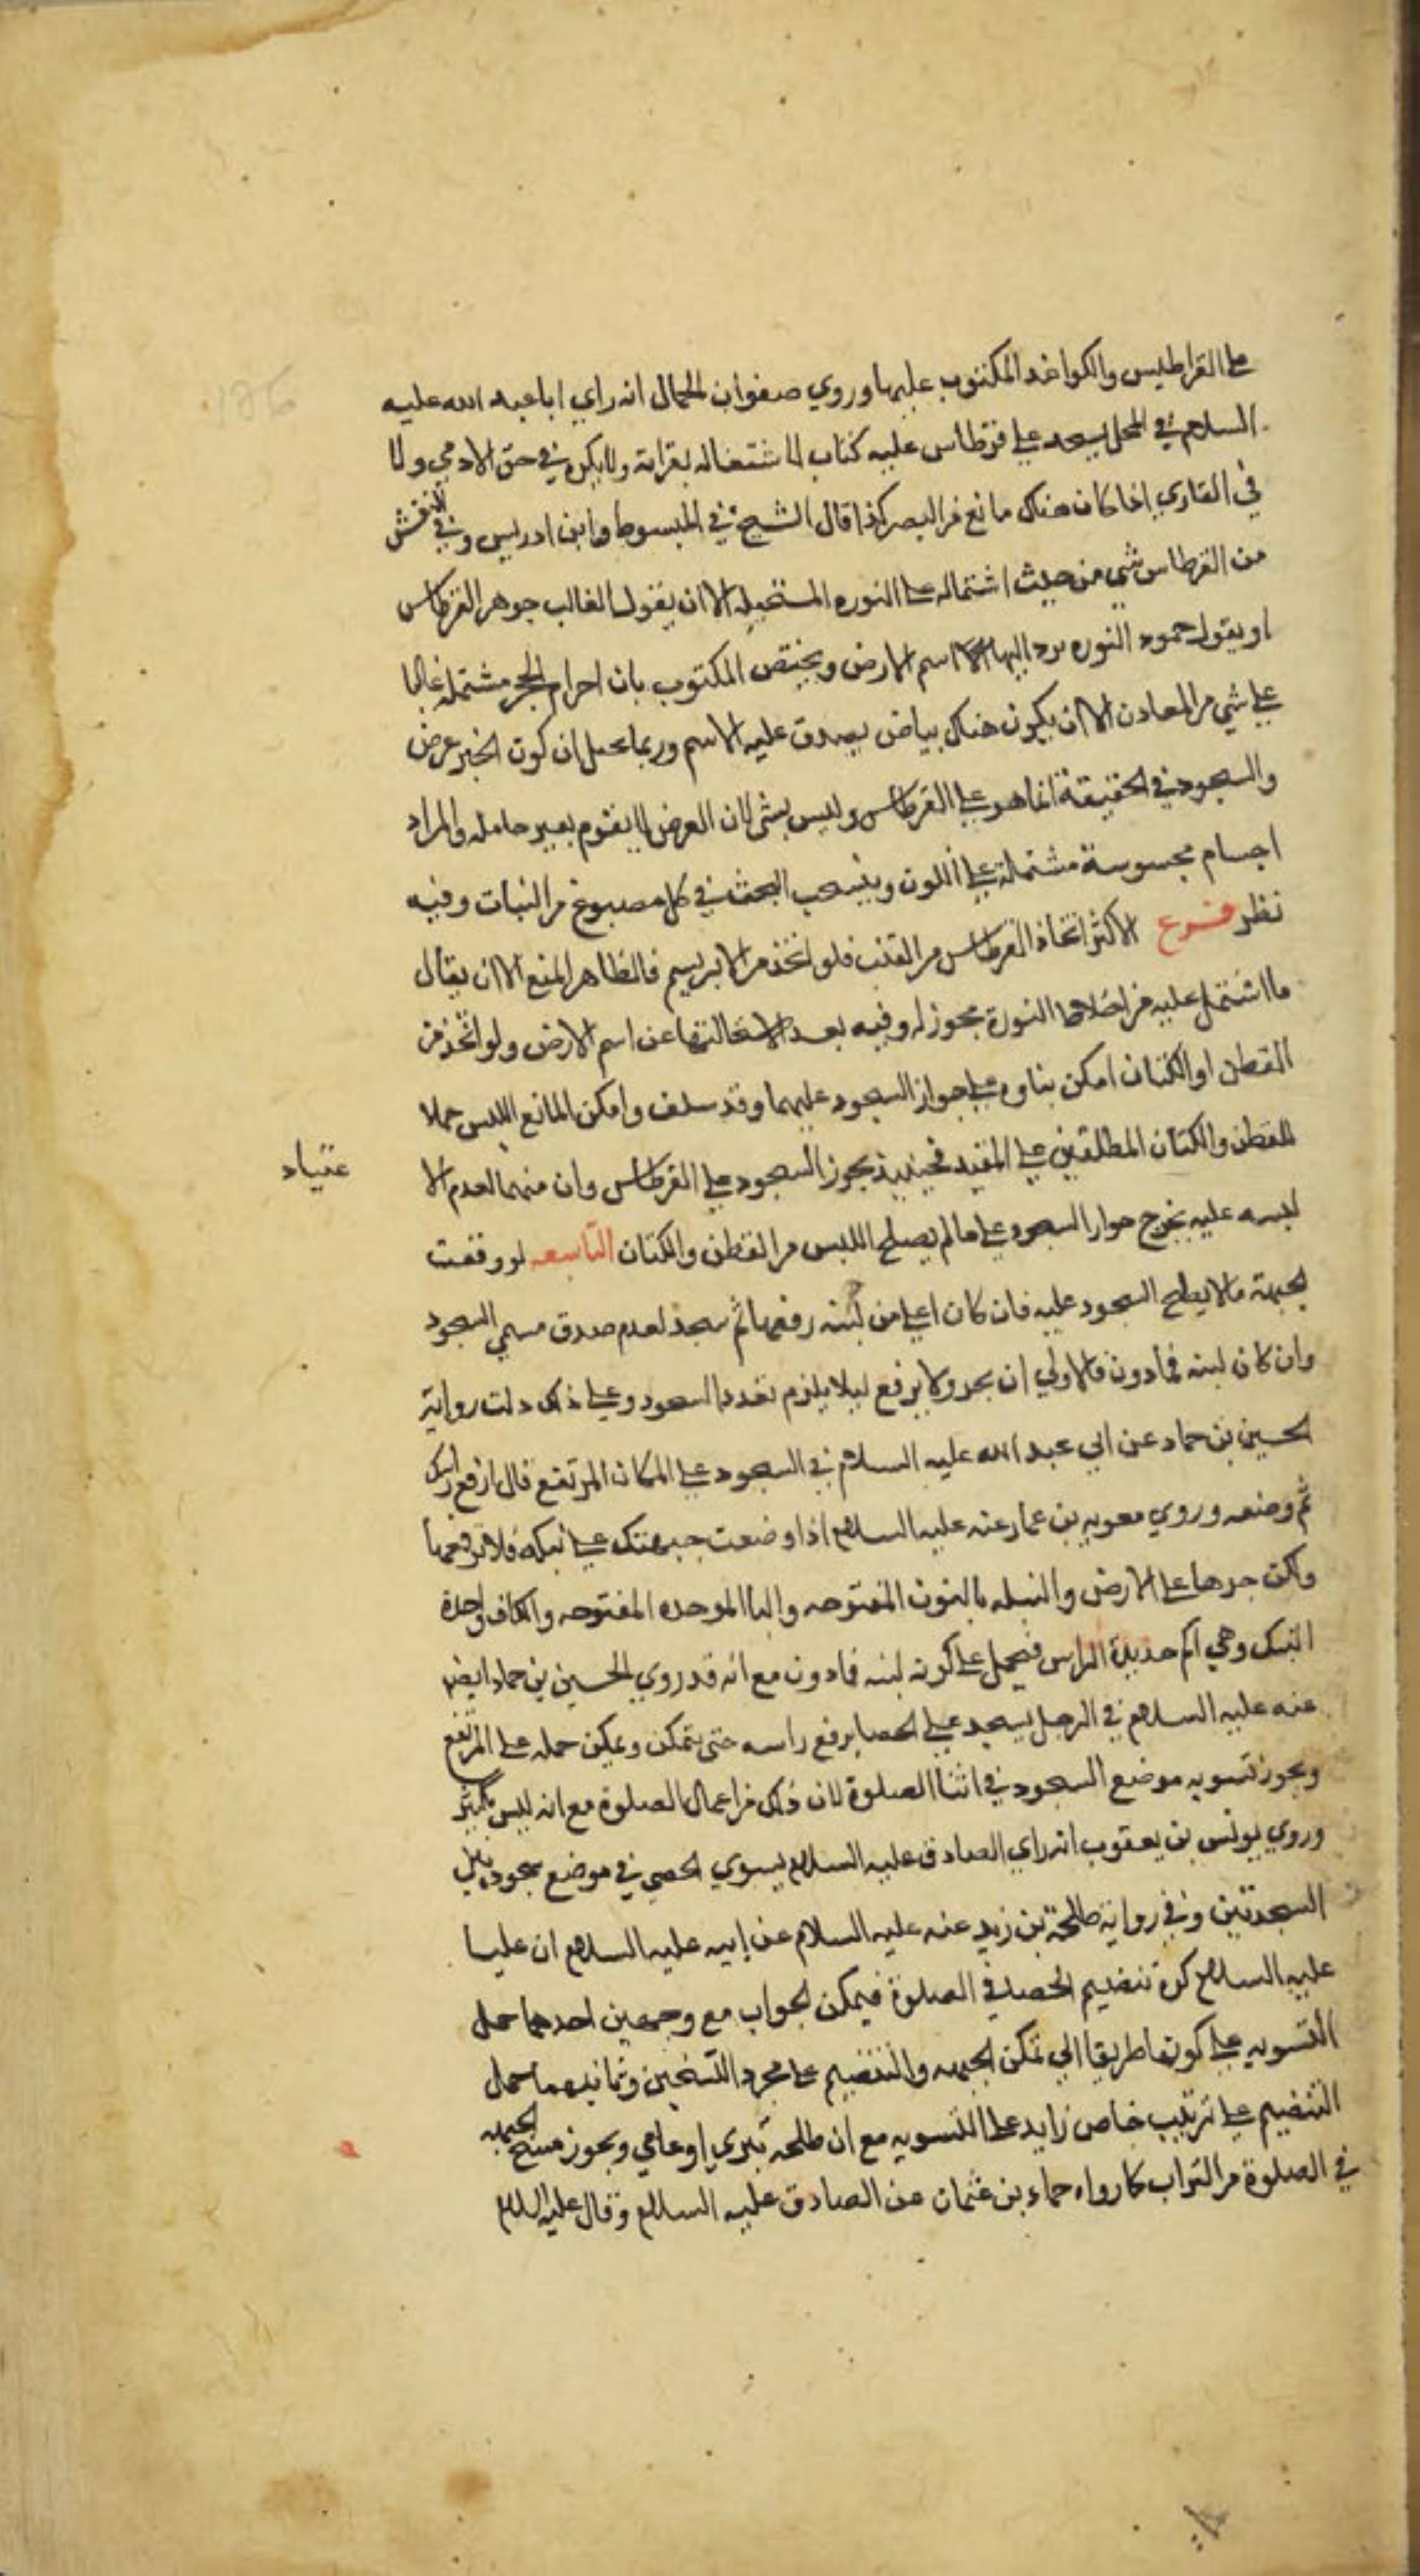 على القراطيس والكواغد المكتوب عليها وروي صفوان الجمال انه راي ابا عبد الله عليه
السلام في المحمل يسجد على قرطاس عليه كتاب لاشتغاله بقرائة ولا يكره في حق الامي ولا
في القاري اذا كان هناك مانع من البصر كذا قال الشيخ في المبسوط وابن ادريس وفي النفس
من القرطاس شي من حيث اشتماله على النوره المستحيله الا ان يقول الغالب جوهر القرطاس
او يقول جمود النوره يرد اليها اسم الارض ويختص المكتوب بان اجرام الحبر مشتمله غالبا
على شي من المعادن الا ان يكون هناك بياض يصدق عليه الاسم وربما يخيل ان كون الحبر عرض
والسجود في الحقيقة انما هو على القرطاس وليس بشي لان العرض لا يقوم بغير حامله والمراد
اجسام محسوسة مشتملة على اللون وينسحب البحث في كل مصبوغ من النبات وفيه
نظر فرع الاكثر اتخاذ القرطاس من القنب فلو اتخذ من الابريسم فالظاهر المنع الا ان يقال
ما اشتمل عليه من اخلاط النورة مجوز له وفيه بعد لاستحالتها عن اسم الارض ولو اتخذ من
القطن او الكتان امكن بناوه على جواز السجود عليهما وقد سلف وامكن المانع اللبس حملا
للقطن والكتان المطلقين على المقيد فحينيذ يجوز السجود على القرطاس وان منهما لعدم الا
عتياد
لبسه عليه يخرج جواز السجود على ما لم يصلح اللبس من القطن والكتان التاسعه لو وقعت
الجبهة ما لا يصلح السجود عليه فان كان اعلى من لبنه رفعها ثم سجد لعدم صدق مسمى السجود
وان كان لبنه فما دون فالاولى ان يجر ولا يرفع ليلا يلزم تعدد السجود وعلى ذلك دلت رواية
الحسين بن حماد عن ابي عبد الله عليه السلام في السجود على المكان المرتفع قال ارفع راسك
ثم وضعه وروي معويه بن عمار عنه عليه السلام اذا وضعت جبهتك على نبكه فلا ترفعها
ولكن جرها على الارض والنبكه بالنون المفتوحه والبا الموحده المفتوحه والكاف واحدة
النبك وهي اكم حديدة الراس فيحمل على كونه لبنه فما دون مع انه قد روي الحسين بن حماد ايض
عنه عليه السلام في الرجل يسجد على الحصا يرفع راسه حتى يتمكن ويمكن حمله على المرتفع
ويجوز تسويه موضع السجود في اثنا الصلوة لان ذلك من اعمال الصلوة مع انه ليس بكثير
وروي يونس بن يعقوب انه راي الصادق عليه السلام يسوي الحصى في موضع سجوده بين
السجدتين وفي رواية طلحة بن زيد عنه عليه السلام عن ابيه عليه السلام ان عليا
عليه السلام كره تنضيم الحصا في الصلوة فيمكن الجواب مع وجهين احدهما حمل
التسويه على كونها طريقا الى تمكن الجبهه والتنضيم على مجرد التحسين وثانيهما حمل
التنضيم على ترتيب خاص زايد على التسويه مع ان طلحه بتري او عامي ويجوز مسح الجبهه
في الصلوة من التراب كما رواه حماد بن عثمان عن الصادق عليه السلام وقال عليه السلام